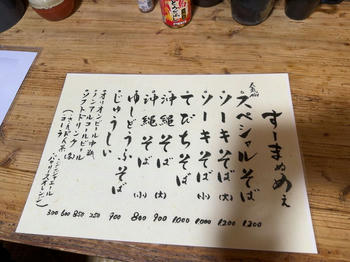 すーまぬめぇ
人気No1
スペシャルそば 1200
ソーキそば (大) 1200
ソーキそば (小) 1000
てびちそば 1000
沖縄そば (大) 900
沖縄そば (小) 800
ゆしどうふそば 900
じゅうしい 250
オリオンビール中瓶
ノンアルコールビール
ソフトドリンク
コーラ
ジンジャエール
850
600
300